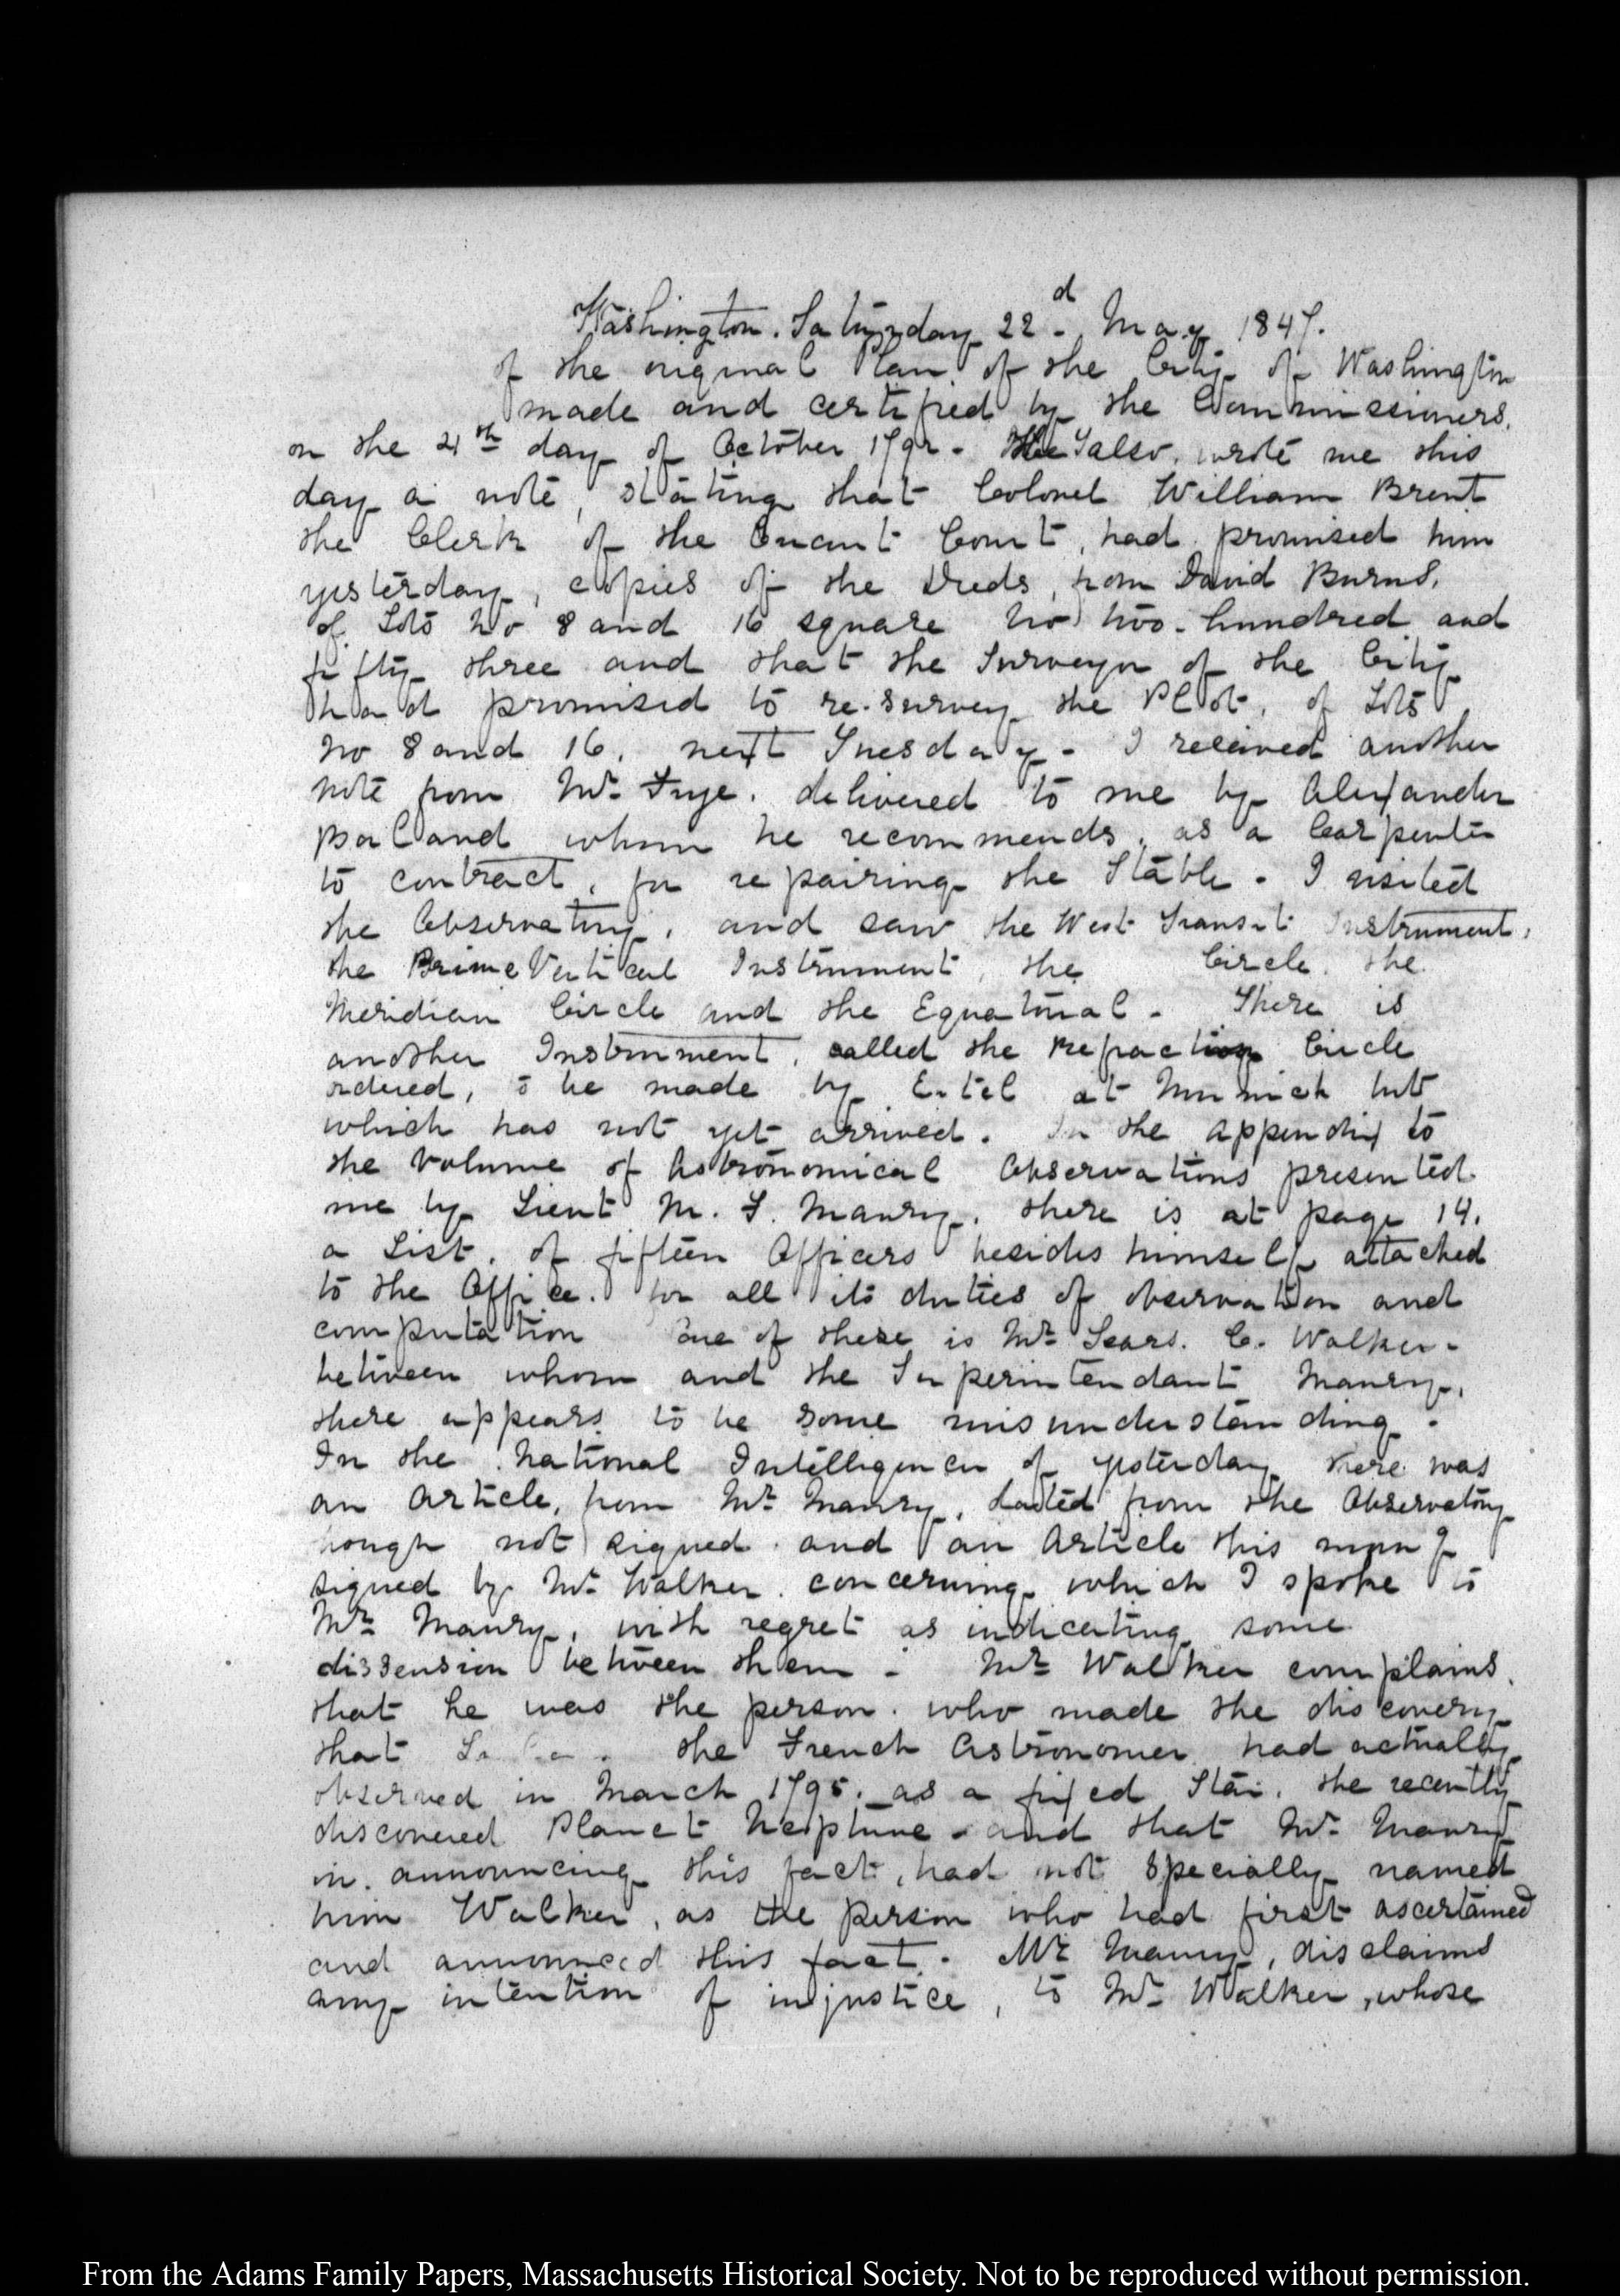 Washington. Saturday 22d. May 1847.
of the original Plan of the City of Washington
made and certified by the Commissioners.
on the 4th day of October 1792 - He also, wrote me this
day a note, stating that Colonel William Brent
the Clerk of the Circuit Court, had promised him
yesterday, copies of the Deeds, from David Burns,
of Lots No 8 and 16 square No two-hundred and
fifty three and that the Surveyor of the City
had promised to re-survey the Plot, of Lots
No 8 and 16, next Tuesday - I received another
note from Mr Frye, delivered to me by Alexander
Borland whom he recommends, as a Carpenter
to contract, for repairing the Stable - I visited
the Observatory, and saw the West Transit Instrument,
the Prime Vertical Instrument, the Circle, the
Meridian Circle and the Equatorial - There is
another Instrument, called the Refraction Circle
ordered, to be made by Ertel at Munnich but
which has not yet arrived. In the appendix to
the volume of Astronomical Observations presented
me by Lieut M. F. Maury, there is at page 14,
a List, of fifteen Officers besides himself attached
to the Office, for all its duties of observation and
computation one of these is Mr Sears. C. Walker -
between whom and the Superintendant Maury,
there appears to be some misunderstanding -
In the National Intelligencer of yesterday there was
an article, from Mr Maury, dated from the Observatory
though not signed and an Article this morng
signed by Mr Walker concerning which I spoke to
Mr Maury, with regret as indicating some
dissension between them - Mr Walker complains
that he was the person who made the discovery
that the French Astronomer had actually
observed in March 1795. as a fixed Star, the recently
discovered Planet Neptune - and that Mr Maury
in announcing this fact, had not specially named
him Walker, as the person who had first ascertained
and announced this fact - Mr Maury, disclaims
any intention of injustice, to Mr Walker, whose
From the Adams Family Papers, Massachusetts Historical Society. Not to be reproduced without permission.